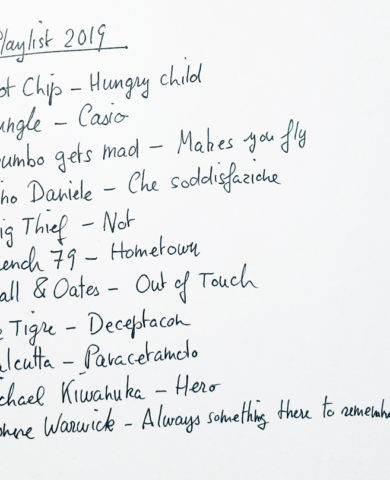 laylist 2019
ot Chip – Hungry child
ungle – Casio
umbo gets mad – Makes you fly
no Daniele – Che soddisfazione
ig Thief – Not
ench 79 – Hometown
all & Oates – Out of Touch
e Tigre – Deceptacon
alcutta – Paracetamolo
chael Kiwanuka – Hero
onne Warwick – Always something there to remembe